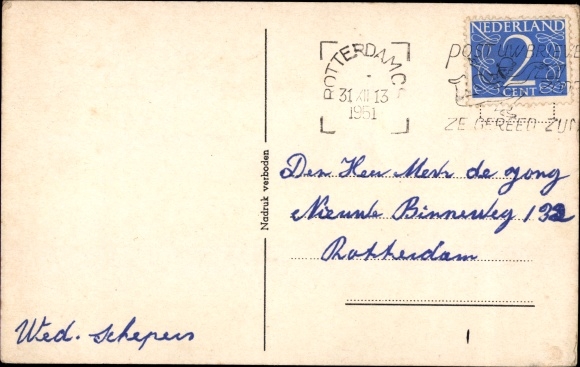 NEDERLAND
2
CENT
ROTTERDAM C.
31 XII 13
1951
POST UW
ZE GEREED ZIJN
Nadruk verboden
Den Heer Mevr de Jong
Nieuwe Binneweg 132
Rotterdam
Wed. Schepers
1